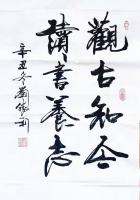 觀古知今
讀書養志
辛丑冬